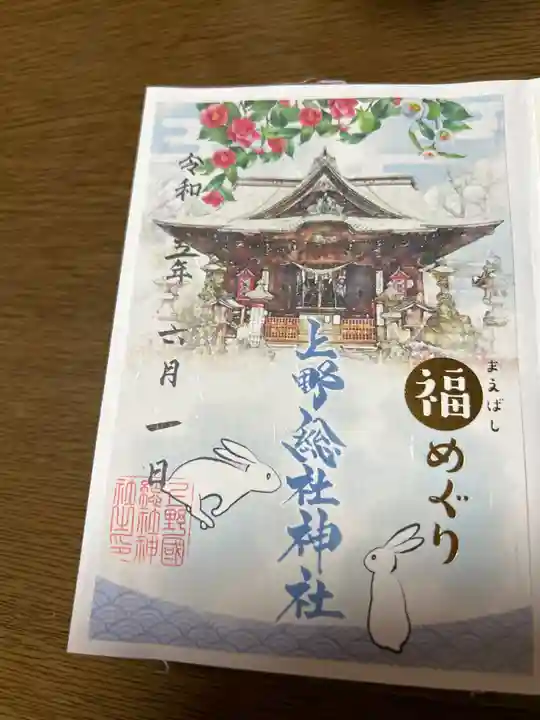 まえばし
福めぐり
上野総社神社
令和五年六月一日
上野國
総社神
社之印